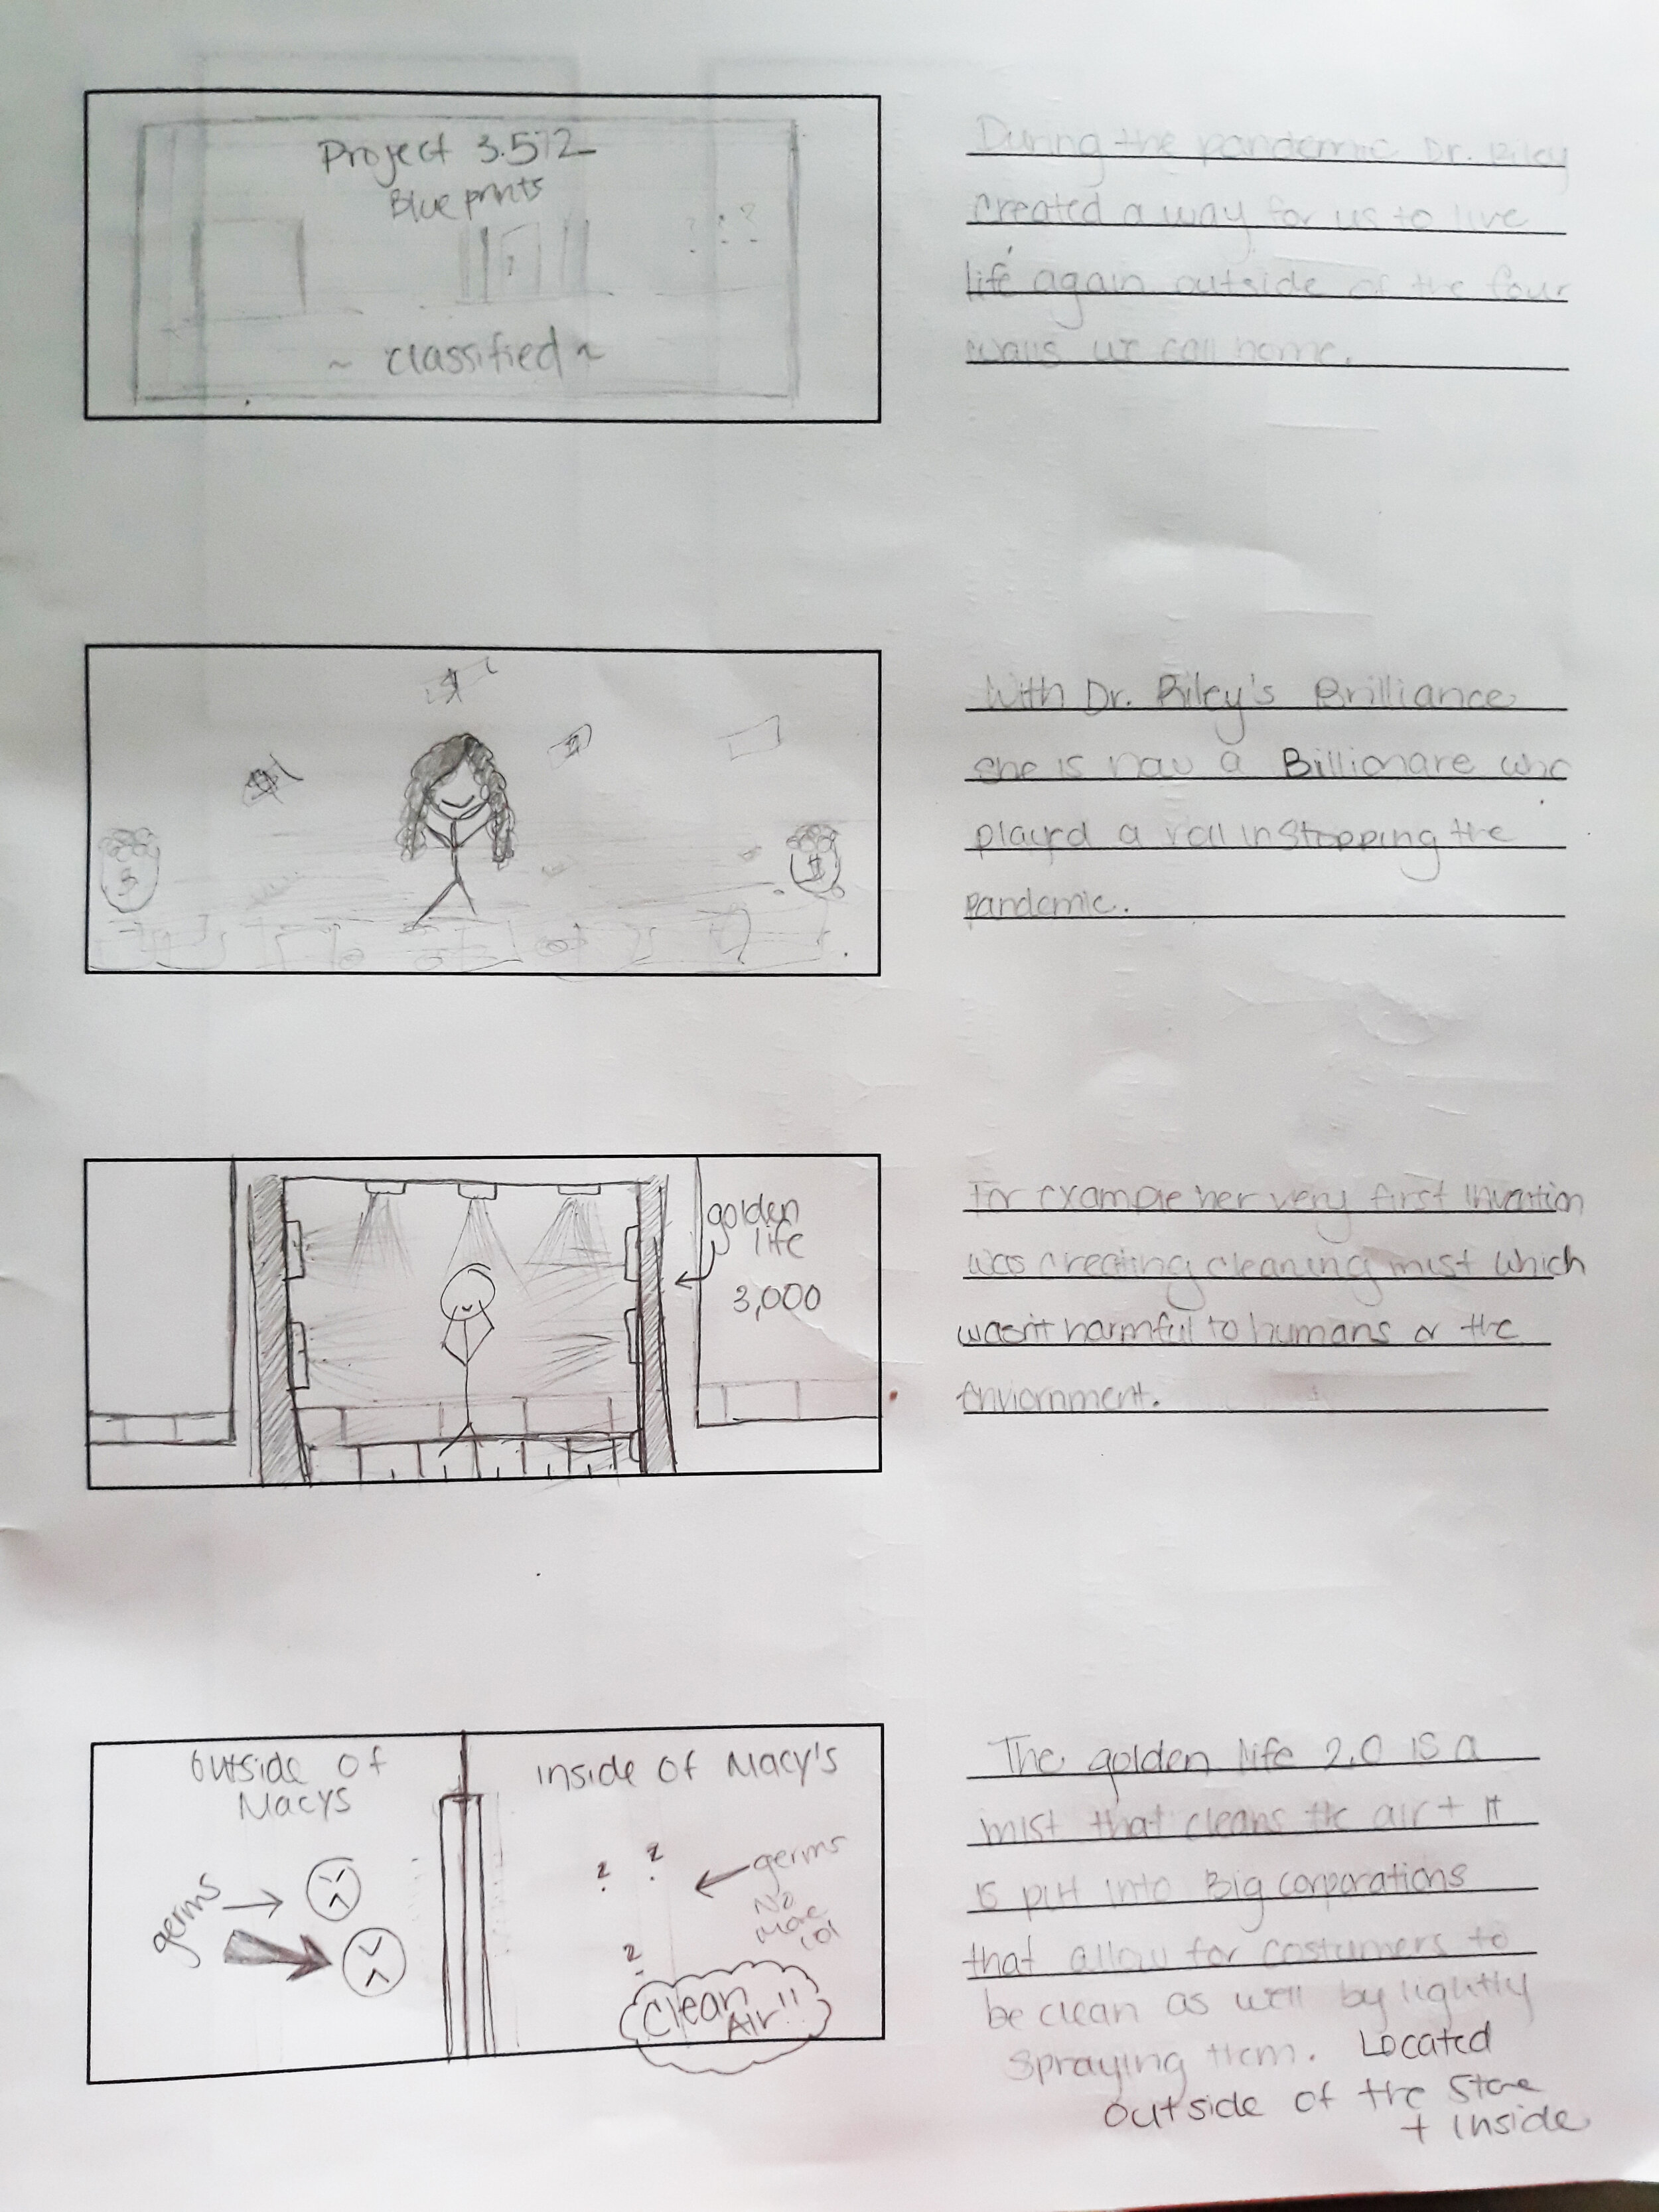 Project 3.512
Blue prints
~ classified ~
During the pandemic Dr. Riley
created a way for us to live
life again outside of the four
walls we call home.
With Dr. Riley's Brilliance
she is now a Billionare who
played a roll in stopping the
pandemic.
golden
life
3,000
For example her very first invention
was creating cleaning mist which
wasn't harmful to humans or the
enviornment.
outside of
Macys
germs
inside of Macy's
germs
No
More
lol
Clean
Air!!
The golden life 2.0 is a
mist that cleans the air + it
is put into Big corporations
that allow for costumers to
be clean as well by lightly
spraying them. Located
outside of the store
+ inside